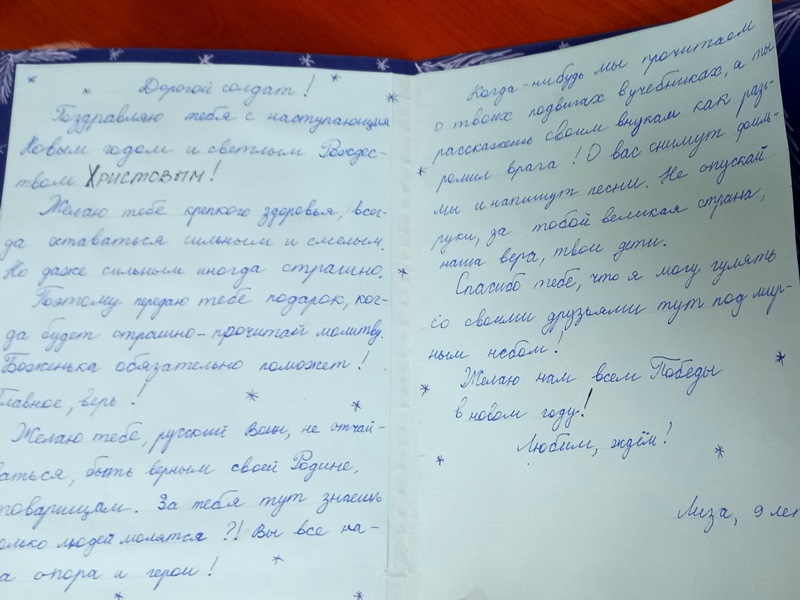 Дорогой солдат!
Поздравляю тебя с наступающим
Новым годом и светлым Рождес-
твом Христовым!
Желаю тебе крепкого здоровья, всег-
да оставаться сильным и смелым.
Но даже сильным иногда страшно.
Поэтому передаю тебе подарок, ког-
да будет страшно - прочитай молитву.
Боженька обязательно поможет!
Главное, верь!
Желаю тебе, русский Воин, не отчаи-
ваться, быть верным своей Родине,
товарищам. За тебя тут знаешь
олько людей молятся?! Вы все на-
а опора и герои!
Когда-нибудь мы прочитаем
о твоих подвигах в учебниках, а ты
расскажешь своим внукам как разг-
ромил врага! О вас снимут филь-
мы и напишут песни. Не опускай
руки, за тобой великая страна,
наша вера, твои дети.
Спасибо тебе, что я могу гулять
со своими друзьями тут под мир-
ным небом!
Желаю нам всем Победы
в новом году!
Любим, ждём!
Лиза, 9 лет